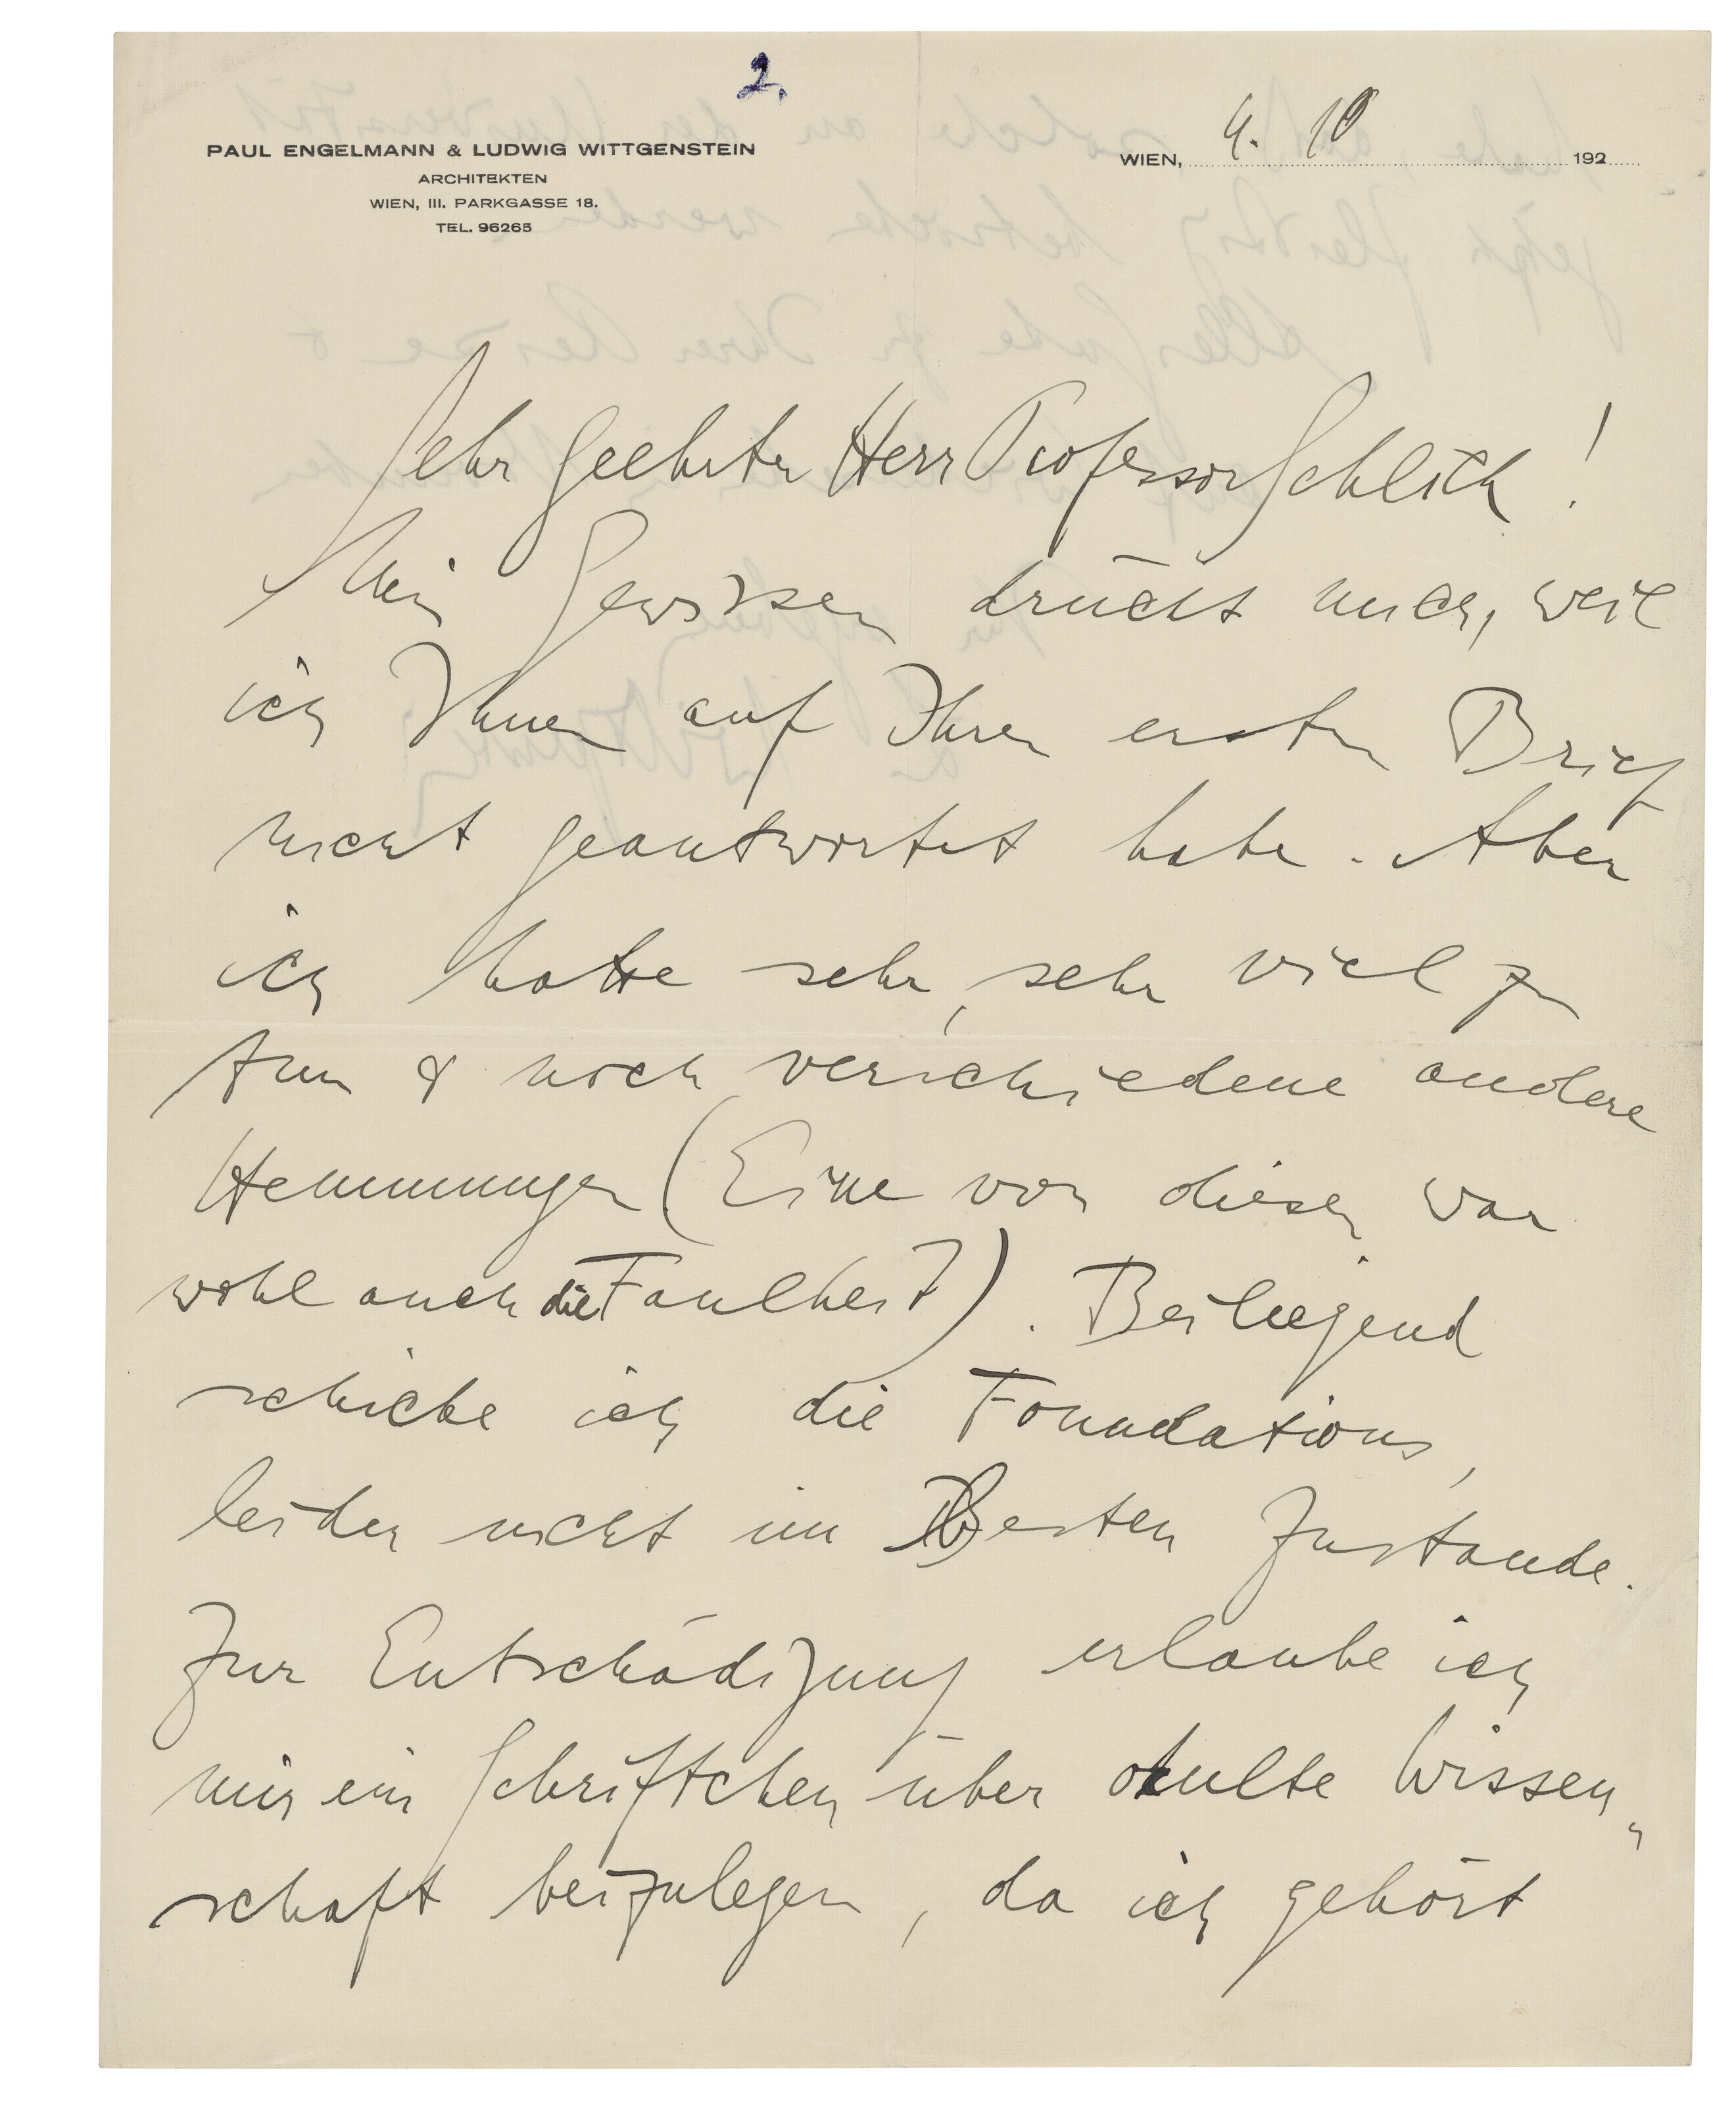 2.
PAUL ENGELMANN & LUDWIG WITTGENSTEIN
ARCHITEKTEN
WIEN, III. PARKGASSE 18.
TEL. 96265
WIEN, 4. 10 192
Sehr geehrter Herr Professor Schlick!
Mein Gewissen drückt mich, weil
ich Ihnen auf Ihren ersten Brief
nicht geantwortet habe. Aber
ich hatte sehr, sehr viel zu
tun & noch verschiedene andere
Hemmungen (Eine von diesen war
wohl auch die Faulheit). Beiliegend
schicke ich die Foundations,
leider nicht im Besten Zustande.
Zur Entschädigung erlaube ich
mir ein Schriftchen über okulte Wissen„
schaft beizulegen, da ich gehört